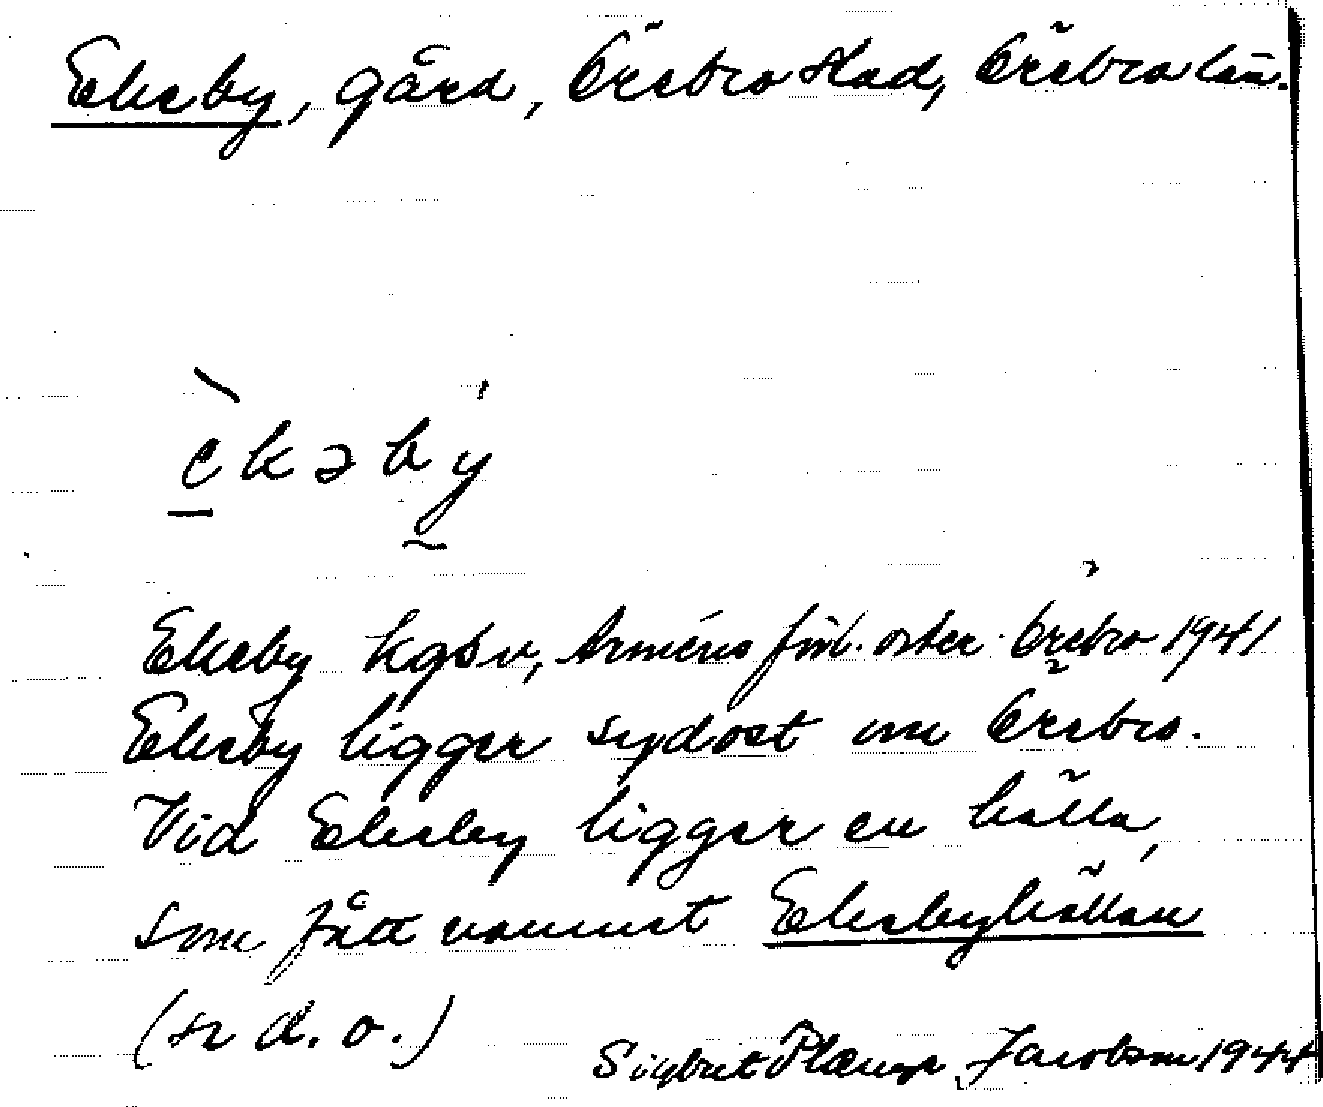 Ekeby, gård, Örebro stad, Örebro län.
èkəbý
Ekeby kgsv, Arméns förb. öster Örebro 1941
Ekeby ligger sydost om Örebro.
Vid Ekeby ligger en hälla,
som fått namnet Ekebyhällan
(se d. o.)
Sigbrit Plænge Jacobson 1944